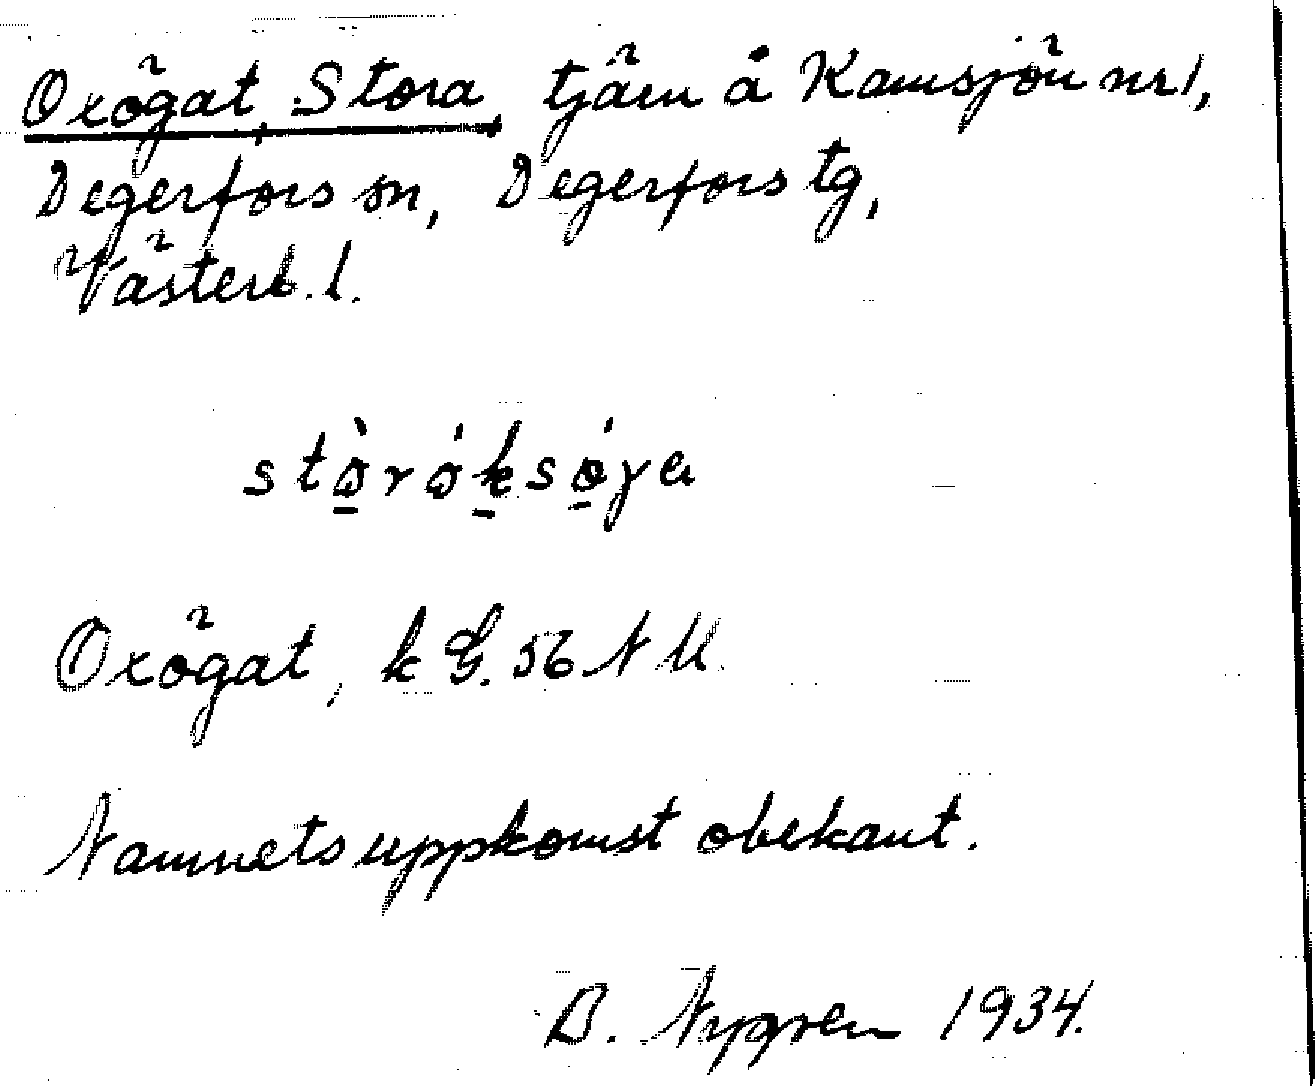 Oxögat, Stora, tjärn å Kamsjön nr 1,
Degerfors sn, Degerfors tg,
Västerb. l.
Oxögat, k G. 56 N U.
Namnets uppkomst obekant.
B. Nygren 1934.